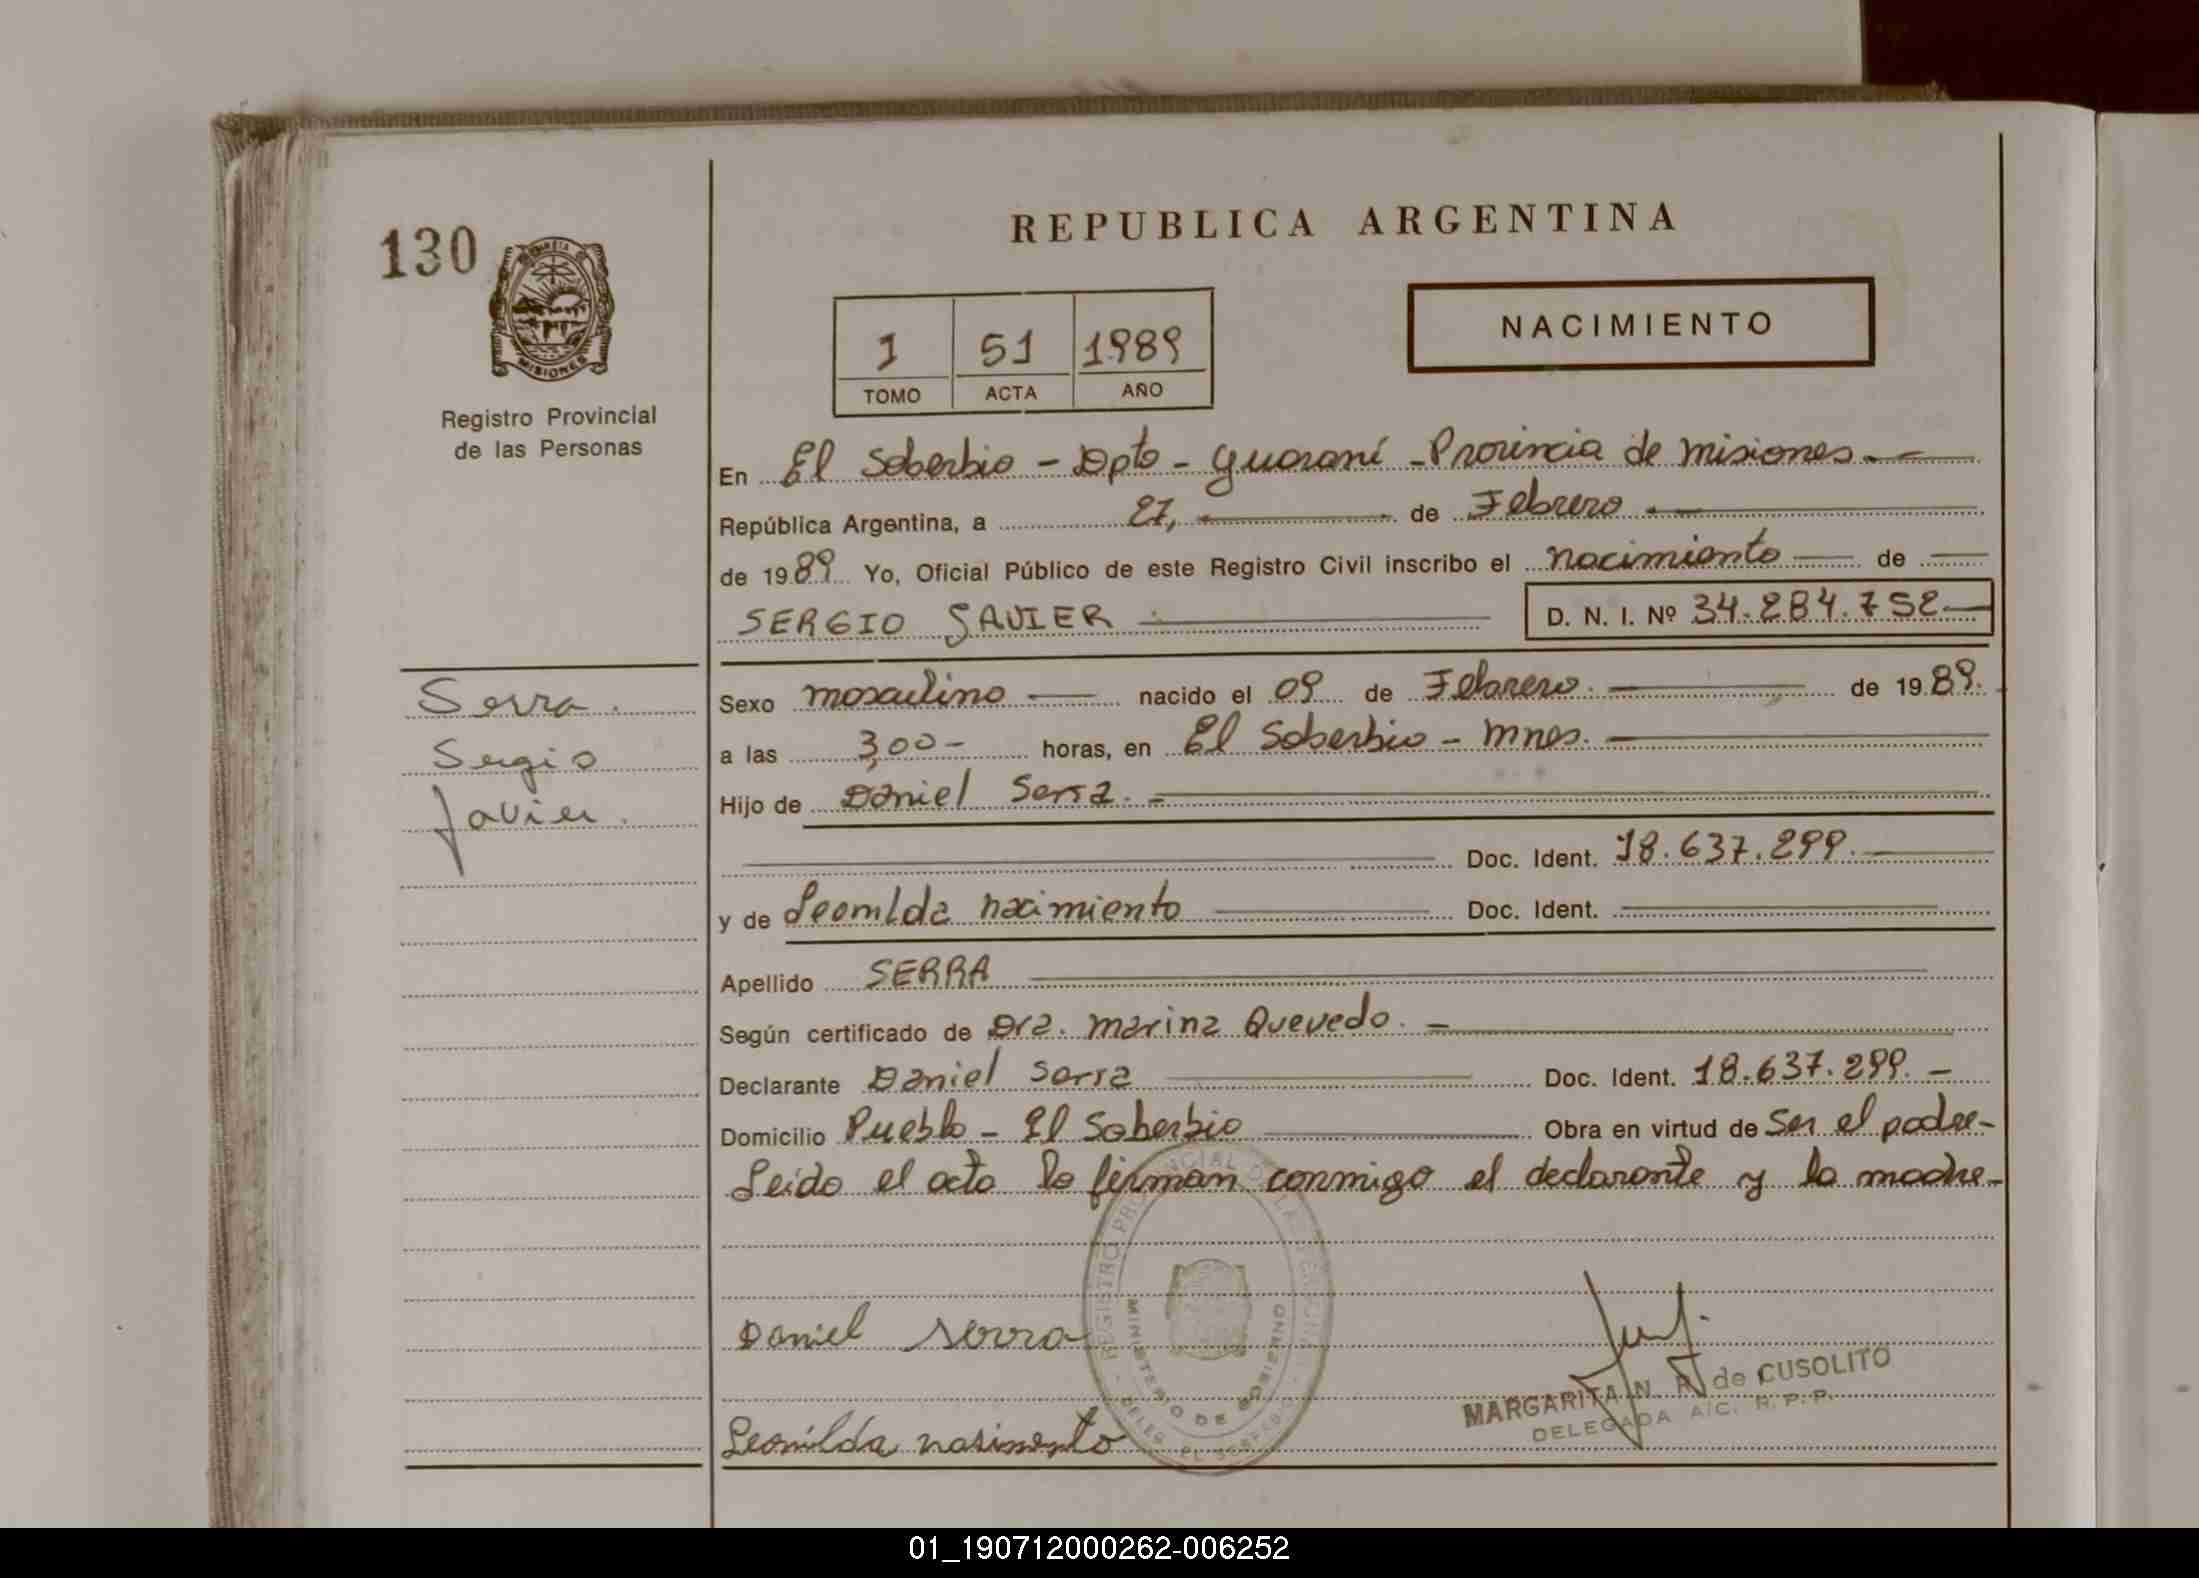 REPUBLICA ARGENTINA
130
MISIONES
Registro Provincial
de las Personas
NACIMIENTO
1 51 1989
TOMO ACTA AÑO
En El Soberbio - Dpto - Guaraní - Provincia de Misiones.-
República Argentina, a 27, de Febrero
de 1989 Yo, Oficial Público de este Registro Civil inscribo el nacimiento de
SERGIO JAVIER D. N. I. Nº 34.284.752
Serra.
Sergio
Javier.
Sexo masculino nacido el 09 de Febrero. de 1989.
a las 3,00- horas, en El Soberbio - Mnes.
Hijo de Daniel Serra.-
Doc. Ident. 18.637.299.
y de Leonilda nacimiento Doc. Ident.
Apellido SERRA
Según certificado de Dra. Marina Quevedo.-
Declarante Daniel Serra Doc. Ident. 18.637.299.-
Domicilio Pueblo - El Soberbio Obra en virtud de Ser el padre-
Leido el acta la firman conmigo el declarante y la madre-
REGISTRO PROVINCIAL DE LAS PERSONAS
MINISTERIO DE GOBIERNO
DELEG. EL SOBERBIO
Daniel Serra
MARGARITA N. R. de CUSOLITO
DELEGADA A/C. R.P.P.
Leonilda nasimento
01_190712000262-006252